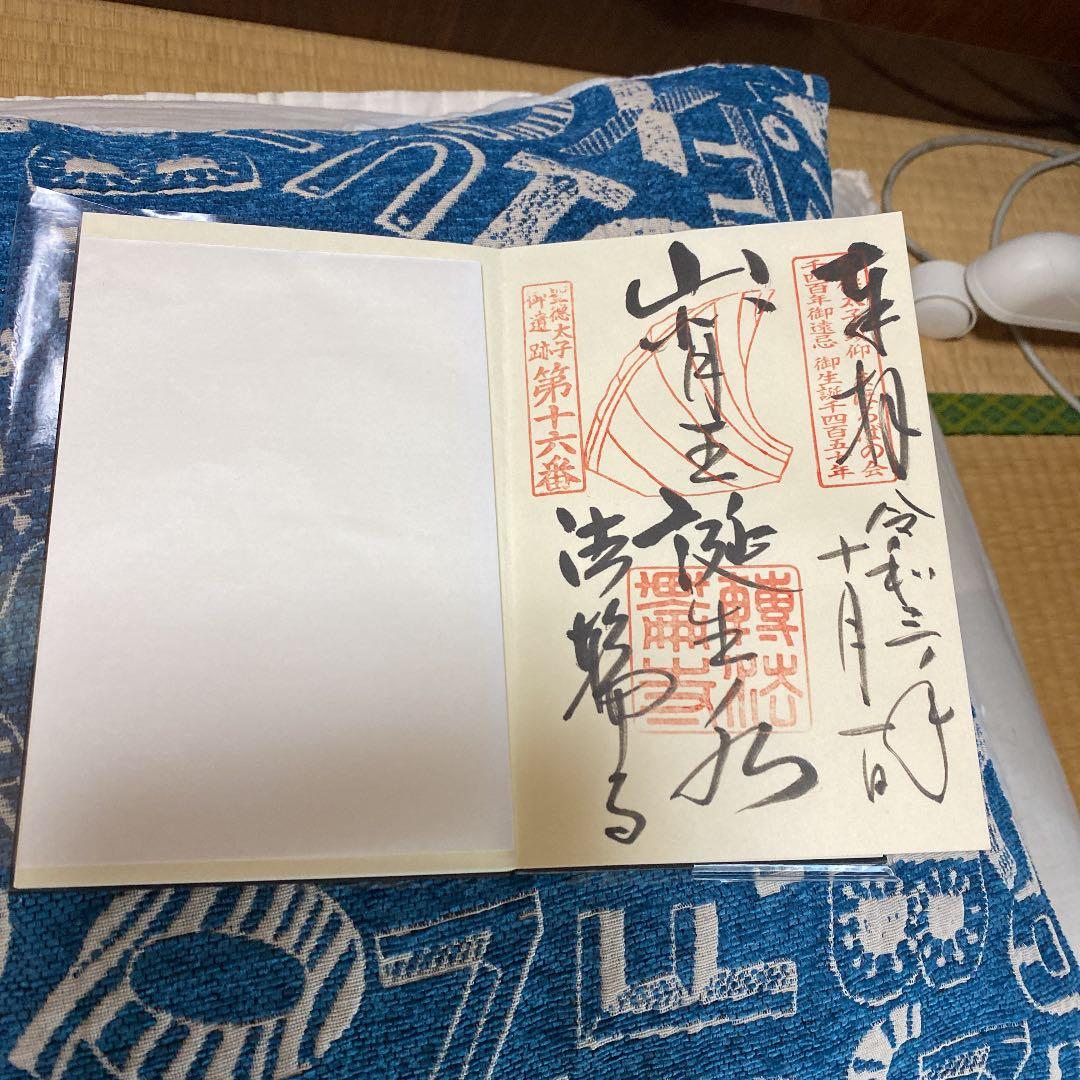 奉拝
令和三年
十月十一日
千四百年御遠忌 御生誕千四百五十年
山背王誕生水
轉法輪寺
法輪寺
聖徳太子
御遺跡
第十六番